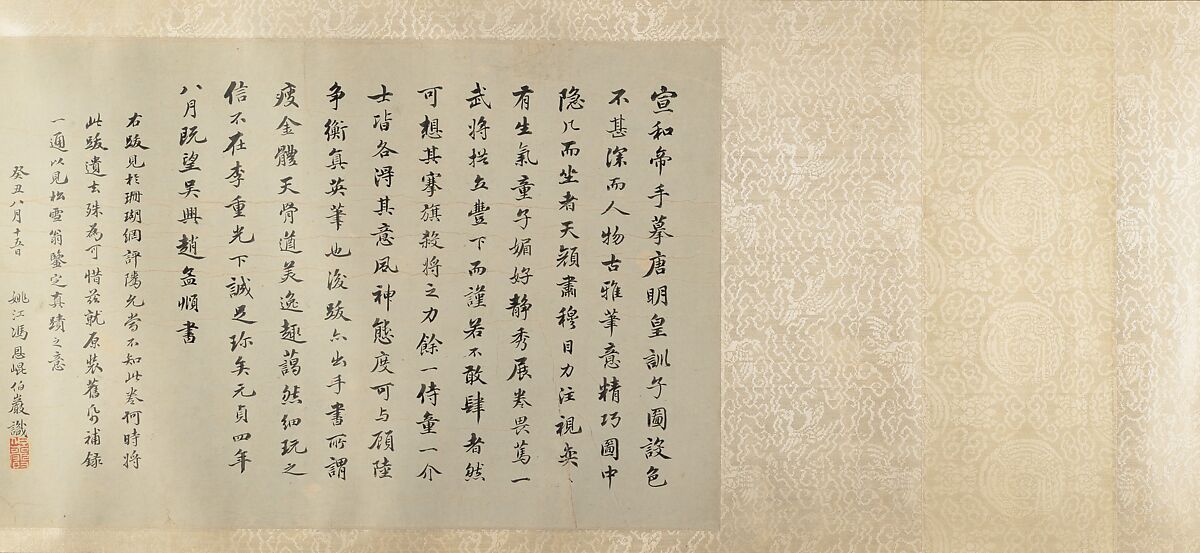 宣和帝手摹唐明皇訓子圖設色
不甚深而人物古雅筆意精巧圖中
隱几而坐者天顏肅穆目力注視奕
有生氣童子媚好靜秀展卷畏篤一
武將拱立豐下而謹若不敢肆者然
可想其搴旗殺將之力餘一侍童一介
士皆各得其意風神態度可与顧陸
爭衡真英筆也後跋亦出手書所謂
瘦金體天骨遒美逸趣藹然細玩之
信不在李重光下誠足珍矣元貞四年
八月既望吳興趙孟頫書
右跋見於珊瑚網評隲允當不知此卷何時將
此跋遺去殊為可惜茲就原裝舊紙補錄
一通以見松雪翁鑒定真蹟之意
癸丑八月十五日 姚江馮恩崐伯巖識